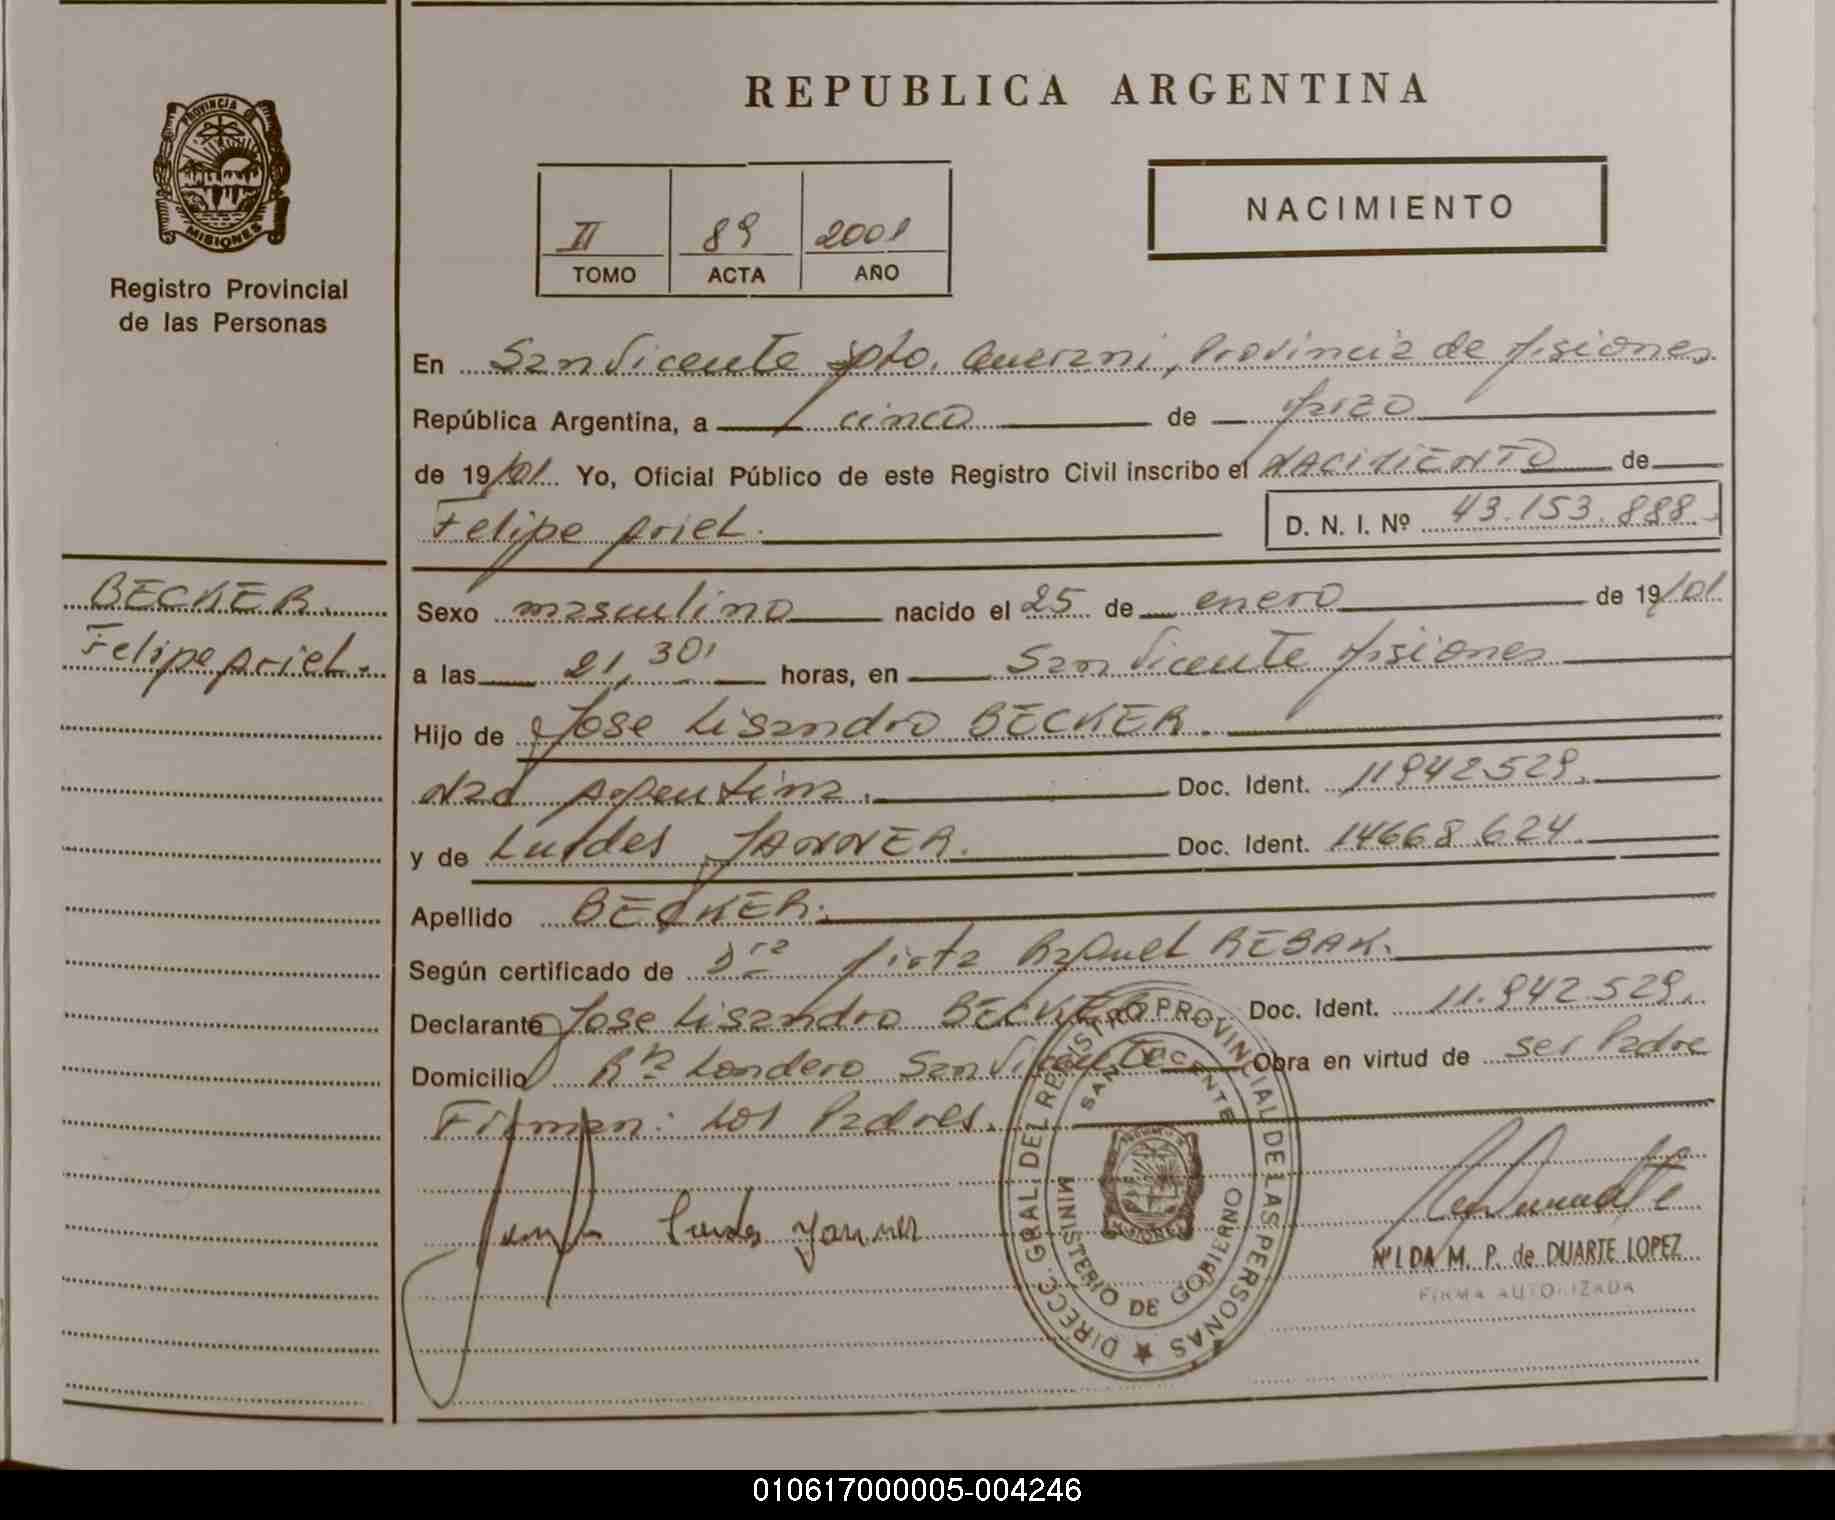 PROVINCIA DE
MISIONES
Registro Provincial
de las Personas
REPUBLICA ARGENTINA
II 89 2001
TOMO ACTA AÑO
NACIMIENTO
En San Vicente Dpto. Guarani, Provincia de Misiones
República Argentina, a cinco de Marzo
de 19/01. Yo, Oficial Público de este Registro Civil inscribo el NACIMIENTO de
Felipe Ariel. D. N. I. Nº 43.153.888.
BECKER
Felipe Ariel.
Sexo masculino nacido el 25 de enero de 19/01
a las 21,30 horas, en San Vicente Misiones
Hijo de Jose Lisandro BECKER.
Nac Argentina. Doc. Ident. 11942529.
y de Lurdes JANNER. Doc. Ident. 14668.624.
Apellido BECKER.
Según certificado de Dra Mirta Raquel REBAK.
Declarante Jose Lisandro BECKER Doc. Ident. 11.942.529.
Domicilio Bº Londero San Vicente Obra en virtud de ser Padre
Firman: Los Padres.
Lurdes Janner
DIRECC. GRAL. DEL REGISTRO PROVINCIAL DE LAS PERSONAS
SAN VICENTE
MINISTERIO DE GOBIERNO
MISIONES
NILDA M. P. de DUARTE LOPEZ
FIRMA AUTORIZADA
010617000005-004246